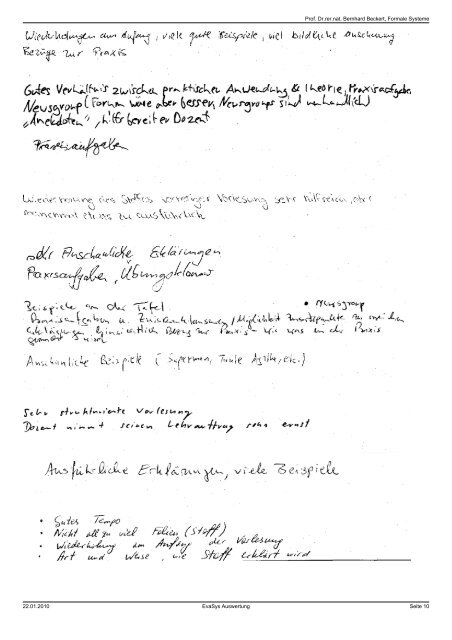 Prof. Dr.rer.nat. Bernhard Beckert, Formale Systeme
Wiederholungen am Anfang, viele gute Beispiele, viel bildliche Anschauung
Bezüge zur Praxis
Gutes Verhältnis zwischen praktischer Anwendung & Theorie, Praxisaufgaben
Newsgroup (Forum wäre aber besser, Newsgroups sind unhandlich)
"Anekdoten", hilfsbereiter Dozent
Praxisaufgaben
Wiederholung des Stoffes voriger Vorlesung sehr hilfreich, aber
manchmal etwas zu ausführlich
sehr Anschauliche Erklärungen
Praxisaufgaben, Übungsklausur
Beispiele an der Tafel
• Newsgroup
Praxisaufgaben u. Zwischenklausur / Möglichkeit Zusatzpunkte zu
Erklärungen hinsichtlich Bezug zur Praxis - wie was in der Praxis
Anschauliche Beispiele (Superman, Tante Agathe, etc.)
Sehr strukturierte Vorlesung
Dozent nimmt seinen Lehrauftrag sehr ernst
Ausführliche Erklärungen, viele Beispiele
• Gutes Tempo
• Nicht allzu viel Folien (Stoff)
• Wiederholung am Anfang der Vorlesung
• Art und Weise, wie Stoff erklärt wird
22.01.2010
EvaSys Auswertung
Seite 10